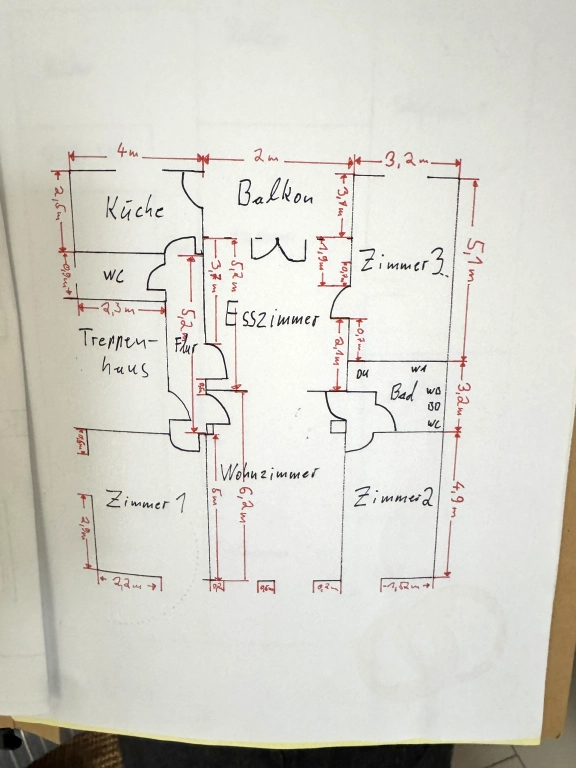 4m 2m 3,2m
2,5m
Küche
Balkon
3,1m
Zimmer 3
5,1m
WC
0,9m
2,3m
5,2m
3,7m
5,2m
1,9m
0,7m
Esszimmer
Treppen-
haus
Flur
2,1m
0,7m
DU
WA
Bad
WB
BD
WC
3,2m
Wohnzimmer
Zimmer 1
Zimmer 2
5m
6,2m
4,9m
2,2m
0,2m
1,52m